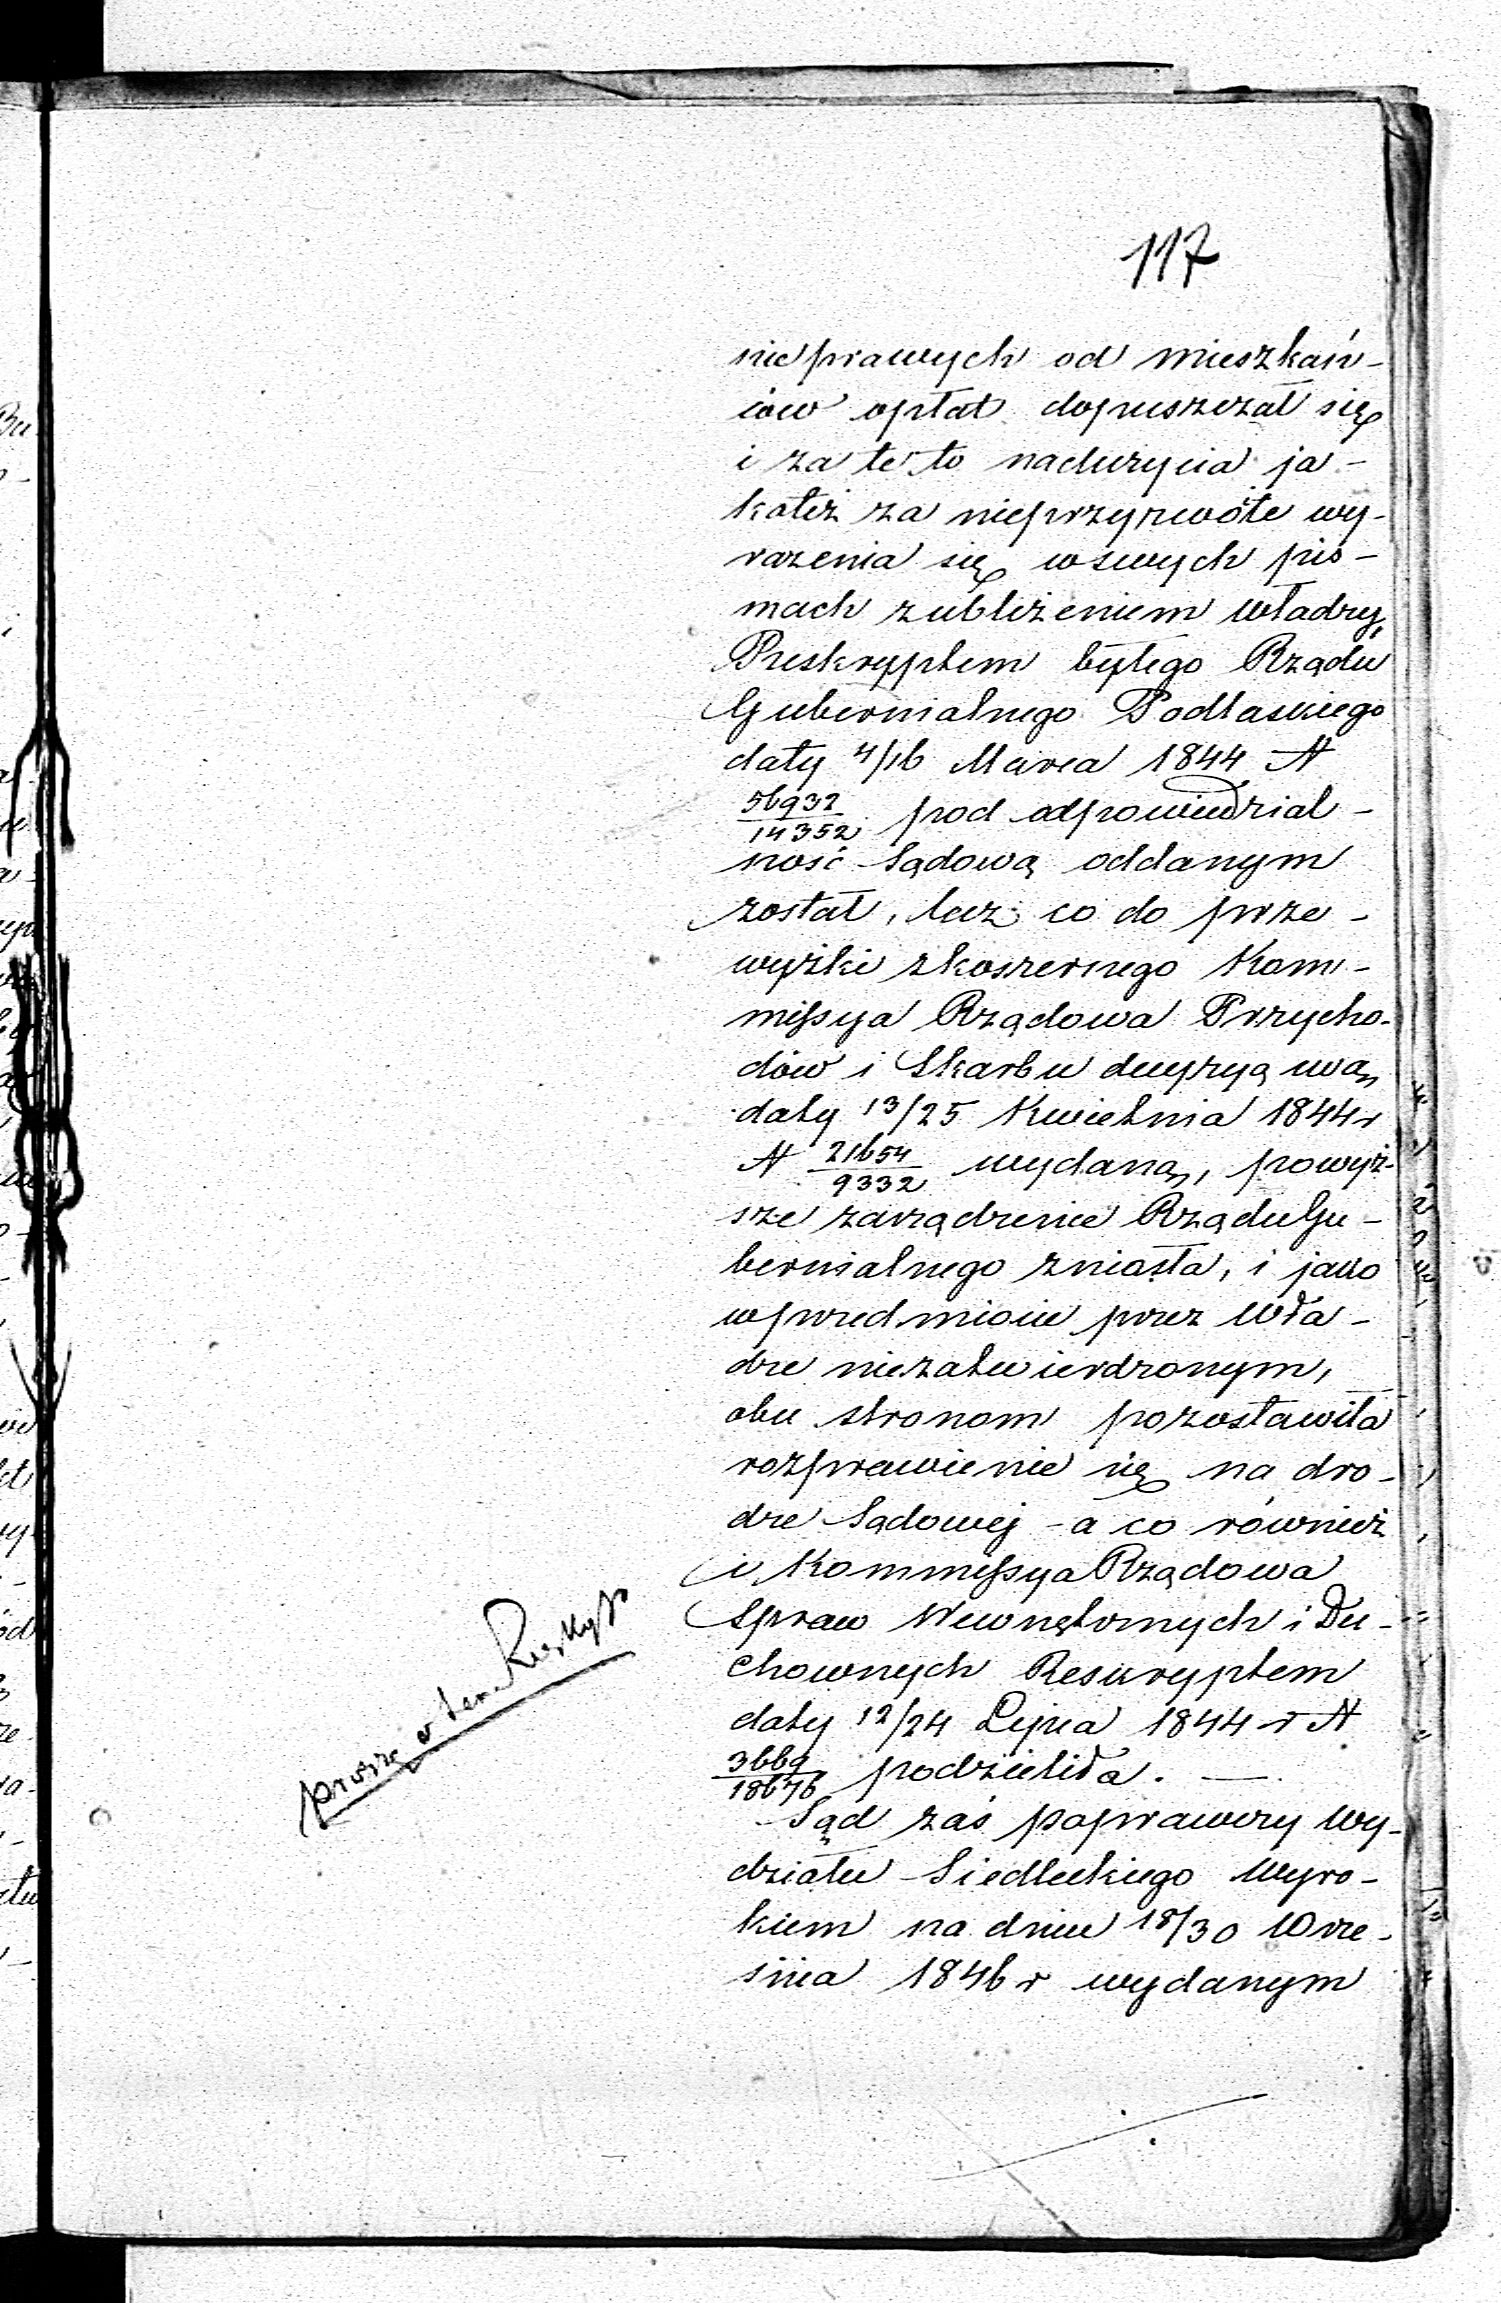 117
nieprawych od mieszkań-
ców opłat dopuszczał się
i za te to nadużycia ja-
kotéż za nieprzyzwoite wy-
rażenia się w swych pis-
mach z ubliżeniem władzy,
Reskryptem byłego Rządu
Gubernialnego Podlaskiego
daty 4/16 Marca 1844 N
56932/14352 pod odpowiedzial-
ność Sądową oddanym
został, lecz co do prze-
wyżki z koszernego Kom-
missya Rządowa Przycho-
dów i Skarbu decyzyą swą
daty 13/25 Kwietnia 1844 r
N 21654/9332 wydaną, powyż-
sze zarządzenie Rządu Gu-
bernialnego zniosła, i jako
w przedmiocie przez Wła-
dze niezatwierdzonym,
obu stronom pozostawiła
rozprawienie się na dro-
dze Sądowej - a co również
i Kommissya Rządowa
Spraw Wewnętrznych i Du-
chownych Reskryptem
daty 12/24 Lipca 1844 r N
3669/18676 podzieliła. —
Sąd zaś poprawczy Wy-
działu Siedleckiego Wyro-
kiem na dniu 18/30 Wrze-
śnia 1846 r wydanym
proszę o ten Reskrypt